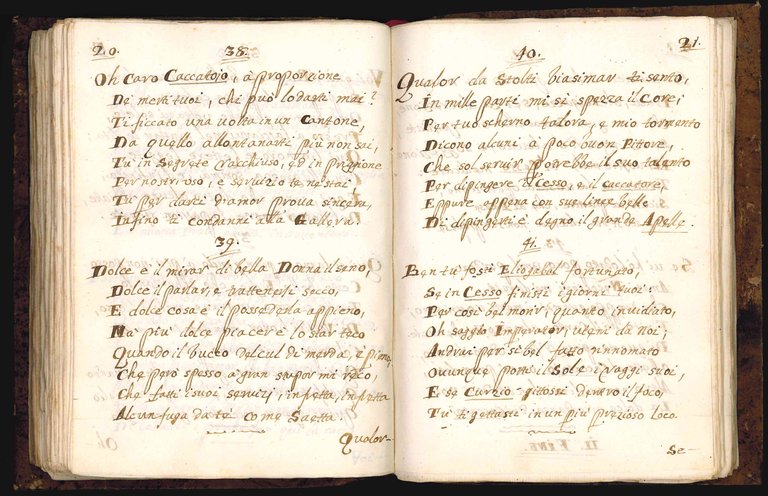 20.
38.
Oh caro Caccatojo, a proporzione
De merti tuoi, chi può lodarti mai?
Ti ficcato una volta in un Cantone,
Da quello allontanarti più non sai,
Tu in Segrete racchiuso, ed in priggione
Per nostri uso, e servizio te ne stai
Tu per darci d'amor prova sincera,
Infino ti condanni alla Gallera.
39.
Dolce è il mirar di bella Donna il seno,
Dolce il parlar, e trattenersi secco,
E dolce cosa è il possederla appieno,
Ma più dolce piacer è lo star teco
Quando il bucco del cul di merda, è pieno,
Che però spesso a gran stupor mi reco,
Che fatti i suoi servizj, in fretta, in fretta
Alcun fuga da te come Saetta.
Qualor
21.
40.
Qualor da Stolti biasimar ti sento,
In mille parte mi si spezza il Core;
Per tuo scherno talora, e mio tormento
Dicono alcuni a poco buon Pittore,
Che sol servir potrebbe il suo talento
Per dipingere il Cesso, e il caccatore,
Eppure appena con sue linee belle
Di dipingerti è degno il grande Apelle.
41.
Ben tu fosti Eliogabal fortunato,
Se in Cesso finisti i giorni tuoi:
Per così bel morir, quanto invidiato,
Oh saggio Imperator, vieni da noi;
Andrai per sì bel fatto rinnomato
Ovunque porti il Sole i raggi suoi,
E se Curzio gittossi dentro il foco,
Tu ti gettasti in un più prezioso loco.
Se